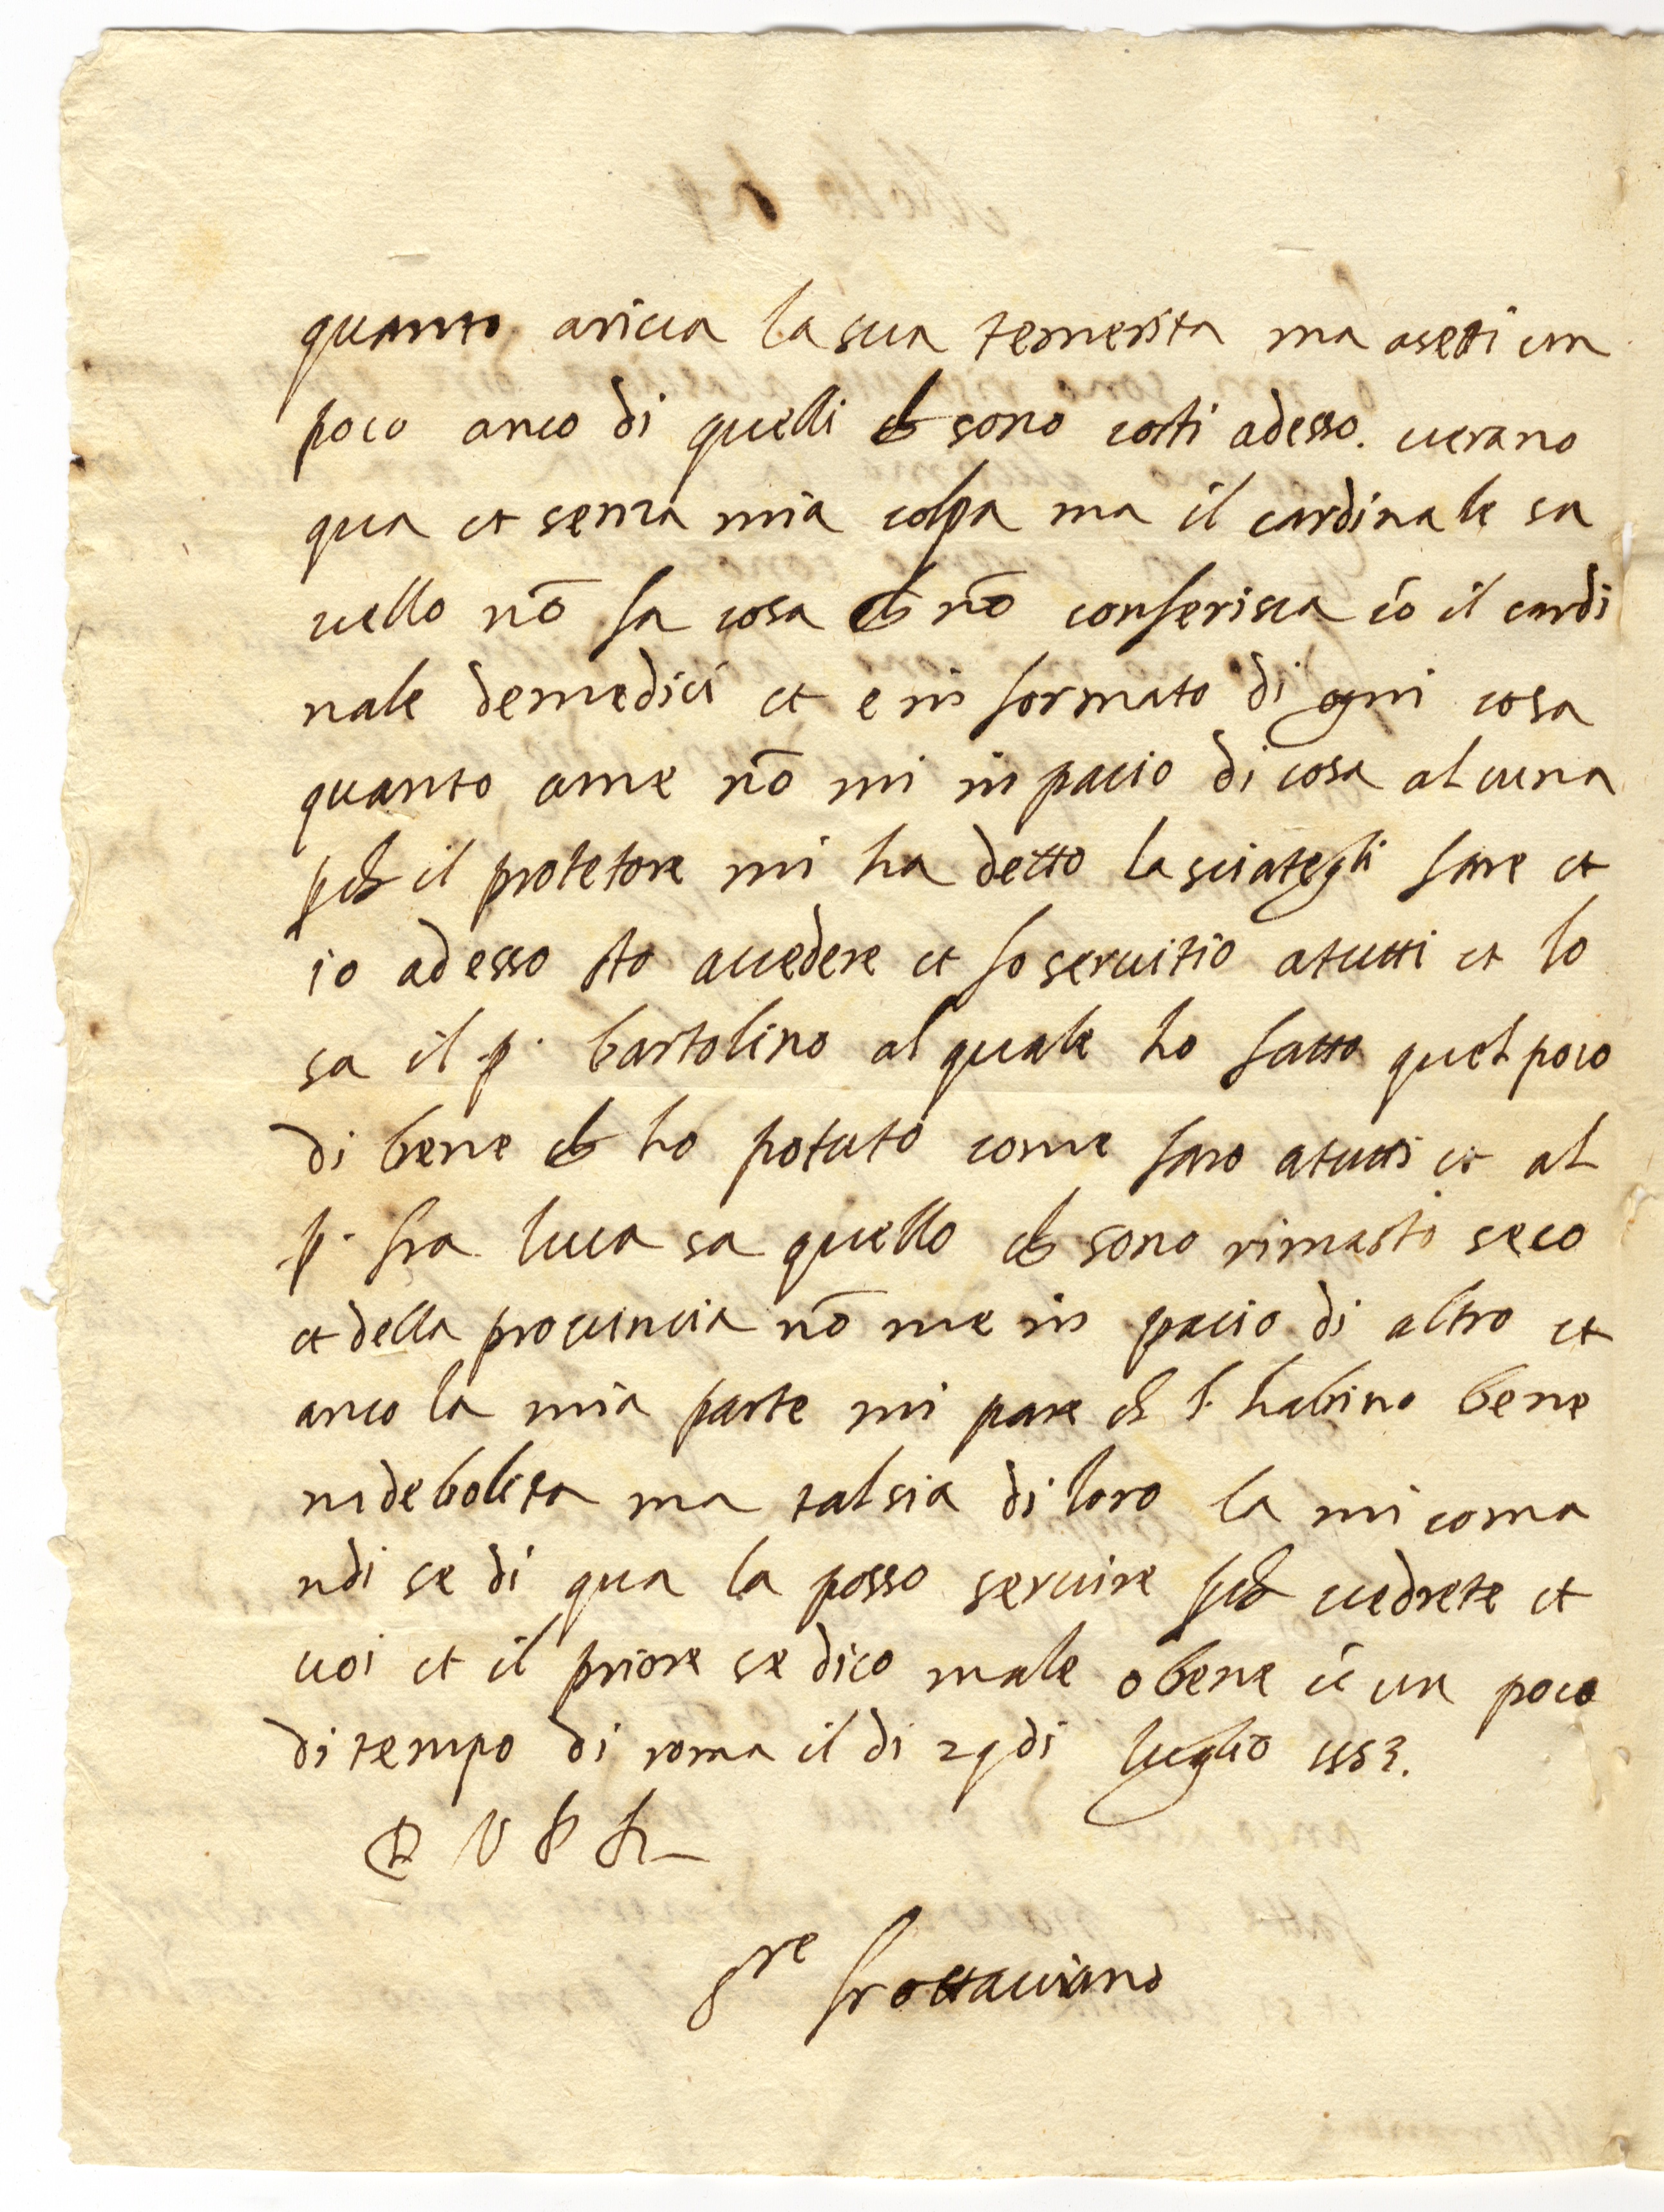 quanto ariua la sua temerita ma aseti un
poco anco di quelli che sono colti adesso. uerano
qua et senza mia colpa ma il cardinale sa
uello nō fa cosa che nō conferisca cō il cardi
nale demedici et e in formato di ogni cosa
quanto ame nō mi in pacio di cosa alcuna
pche il protetore mi ha detto lasciategli fare et
io adesso sto auedere et fo seruitio atutti et lo
sa il .p. bartolino al quale ho fatto quel poco
di bene che ho potuto come faro atutti et al
p. fra luca sa quello che sono rimasto seco
et della prouincia nō me in pacio di altro et
anco la mia parte mi pare che l habino bene
indebolita ma tal sia di loro la mi coma
ndi se di qua la posso seruire pche uedrete et
uoi et il priore se dico male o bene ī un poco
di tempo di roma il di 29 di luglio 1583.
D V P R
sre fr ottauiano